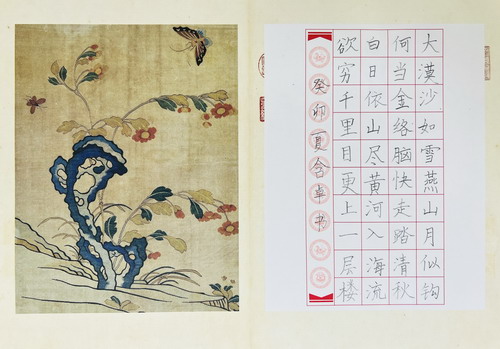 大漠沙如雪燕山月似钩
何当金络脑快走踏清秋
白日依山尽黄河入海流
欲穷千里目更上一层楼
癸卯夏含卓书